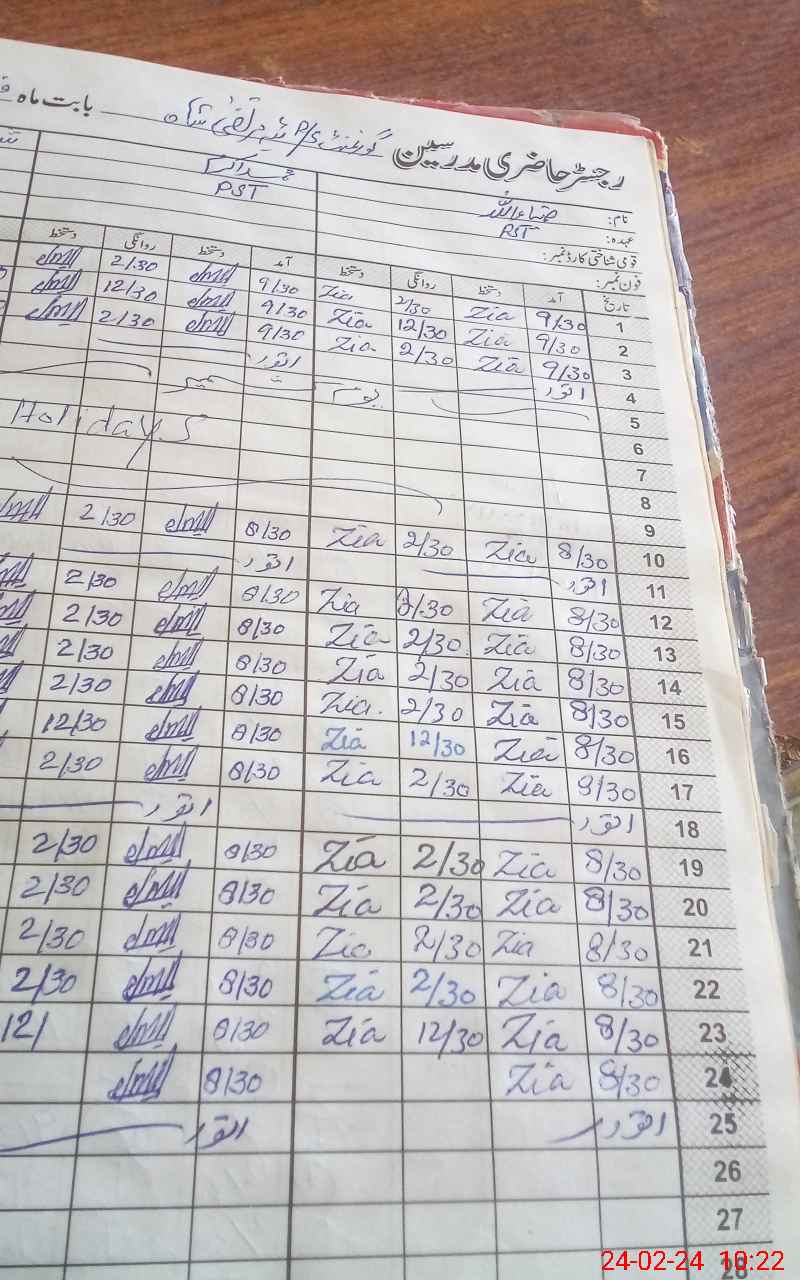 رجسٹر حاضری مدرسین گورنمنٹ P/S شاہ بابت ماہ
نام: ضیاءاللہ
عہدہ: PST PST
قومی شناختی کارڈ نمبر:
فون نمبر:
تاریخ آمد دستخط روانگی دستخط آمد دستخط روانگی دستخط
1 9/30 Zia 2/30 Zia 9/30 2/30
2 9/30 Zia 12/30 Zia 9/30 12/30
3 9/30 Zia 2/30 Zia 9/30 2/30
4 اتوار اتوار
5
6 Holidays
7
8
9
10 8/30 Zia 2/30 Zia 8/30 2/30
11 اتوار اتوار
12 8/30 Zia 2/30 Zia 8/30 2/30
13 8/30 Zia 2/30 Zia 8/30 2/30
14 8/30 Zia 2/30 Zia 8/30 2/30
15 8/30 Zia 2/30 Zia 8/30 2/30
16 8/30 Zia 12/30 Zia 8/30 12/30
17 8/30 Zia 2/30 Zia 8/30 2/30
18 اتوار اتوار
19 8/30 Zia 2/30 Zia 8/30 2/30
20 8/30 Zia 2/30 Zia 8/30 2/30
21 8/30 Zia 2/30 Zia 8/30 2/30
22 8/30 Zia 2/30 Zia 8/30 2/30
23 8/30 Zia 12/30 Zia 8/30 12/
24 8/30 Zia 8/30
25 اتوار اتوار
26
27
28
24-02-24 10:22